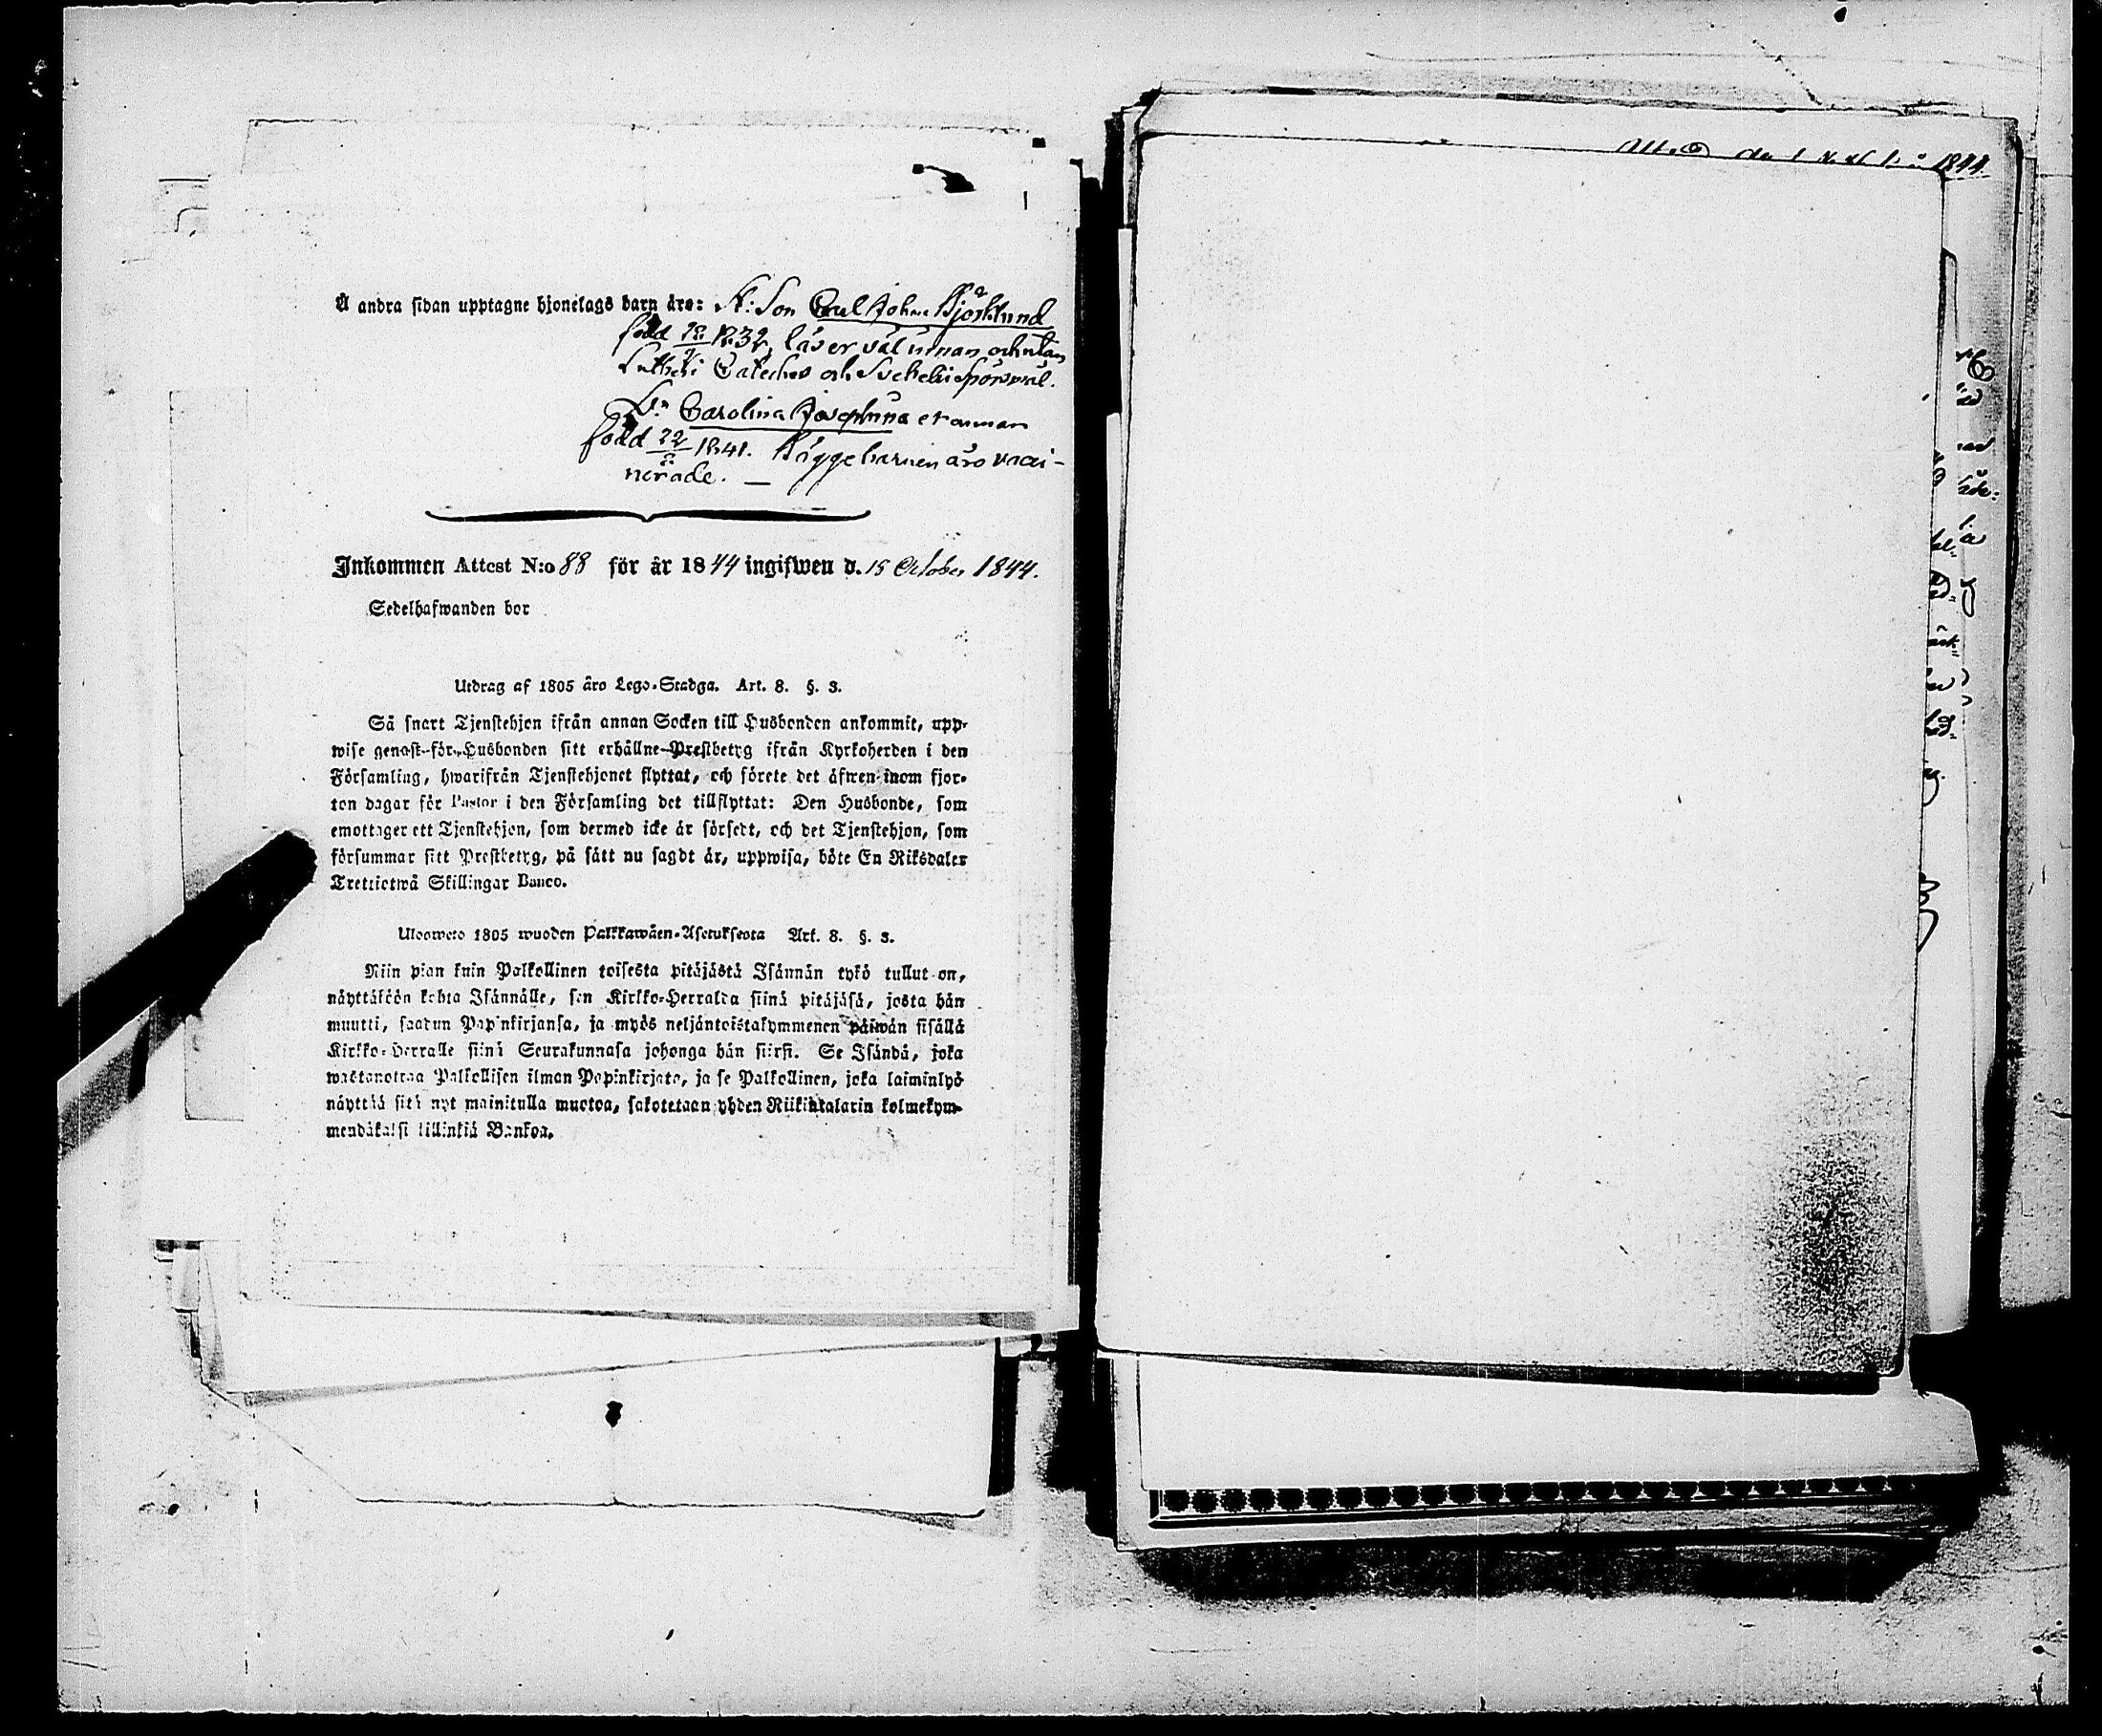 Å andra sidan upptagne hjonelags barn äro: St: Son Carl Johan Björklund
född 18/9 1832, läser väl innan och utan
Lutheri Catechес och Svebelii spörsmål.
Dr. Carolina Josephina er annan
född 22/8 1841. Bägge barnen äro vacci-
nerade. —
Inkommen Attest N:o 88 för år 1844 ingifwen d. 15 October 1844.
Sedelhafwanden bor
Utdrag af 1805 års Lego-Stadga. Art. 8. §. 3.
Så snart Tjenstehjon ifrån annan Socken till Husbonden ankommit, upp-
wise genast för Husbonden sitt erhållne Prestbetyg ifrån Kyrkoherden i den
Församling, hwarifrån Tjenstehjonet flyttat, och förete det äfwen inom fjor-
ton dagar för Pastor i den Församling det tillflyttat: Den Husbonde, som
emottager ett Tjenstehjon, som dermed icke är försedt, och det Tjenstehjon, som
försummar sitt Prestbetyg, på sätt nu sagdt är, uppwisa, böte En Riksdaler
Trettiotwå Skillingar Banco.
Uloswero 1805 wuoden Palkkawäen-Asetuksesta Art. 8. §. 3.
Niin pian kuin Palkollinen toisesta pitäjästä Isännän tykö tullut on,
näyttäköön kohta Isännälle, sen Kirkko-Herralta siinä pitäjäsä, josta hän
muutti, saadun Papinkirjansa, ja myös neljäntoistakymmenen päiwän sisällä
Kirkko-Herralle siinä Seurakunnasa johonga hän siirsi. Se Isändä, joka
wastanottaa Palkollisen ilman Papinkirjata, ja se Palkollinen, joka laiminlyö
näyttää sitä nyt mainitulla muotoa, sakotetaan yhden Riikintalarin kolmekym-
mendäkaksi killinkiä Bankoa.
1844.